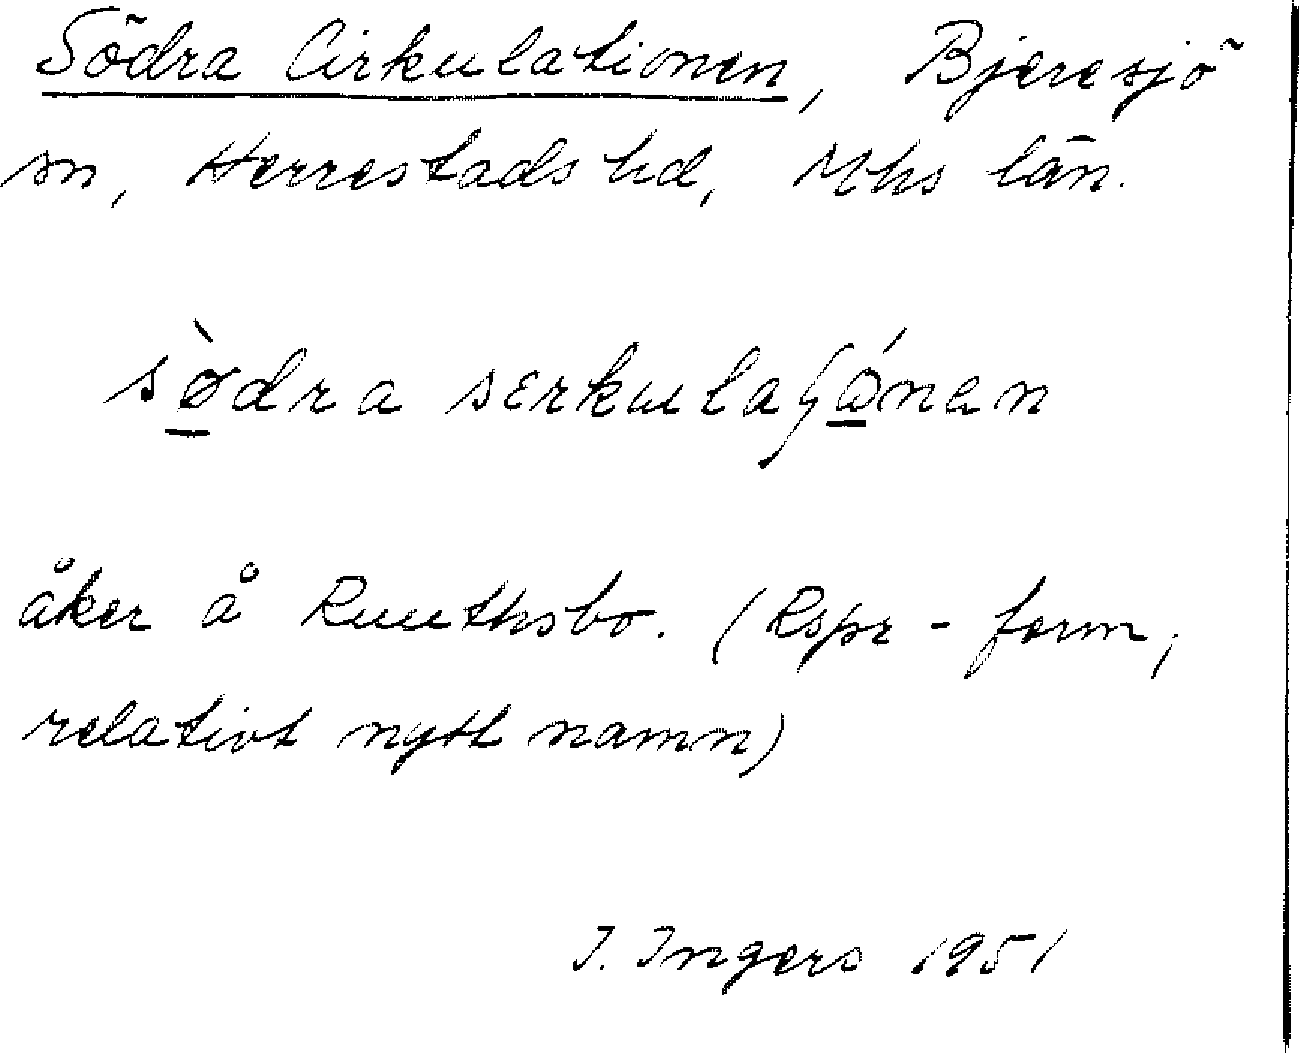 Södra Cirkulationen, Bjeresjö
sn, Herrestads hd, Mhs län.
sø̀dra serkulaʃǿnen
åker å Ruuthsbo. (Rspr-form,
relativt nytt namn)
I. Ingers 1951